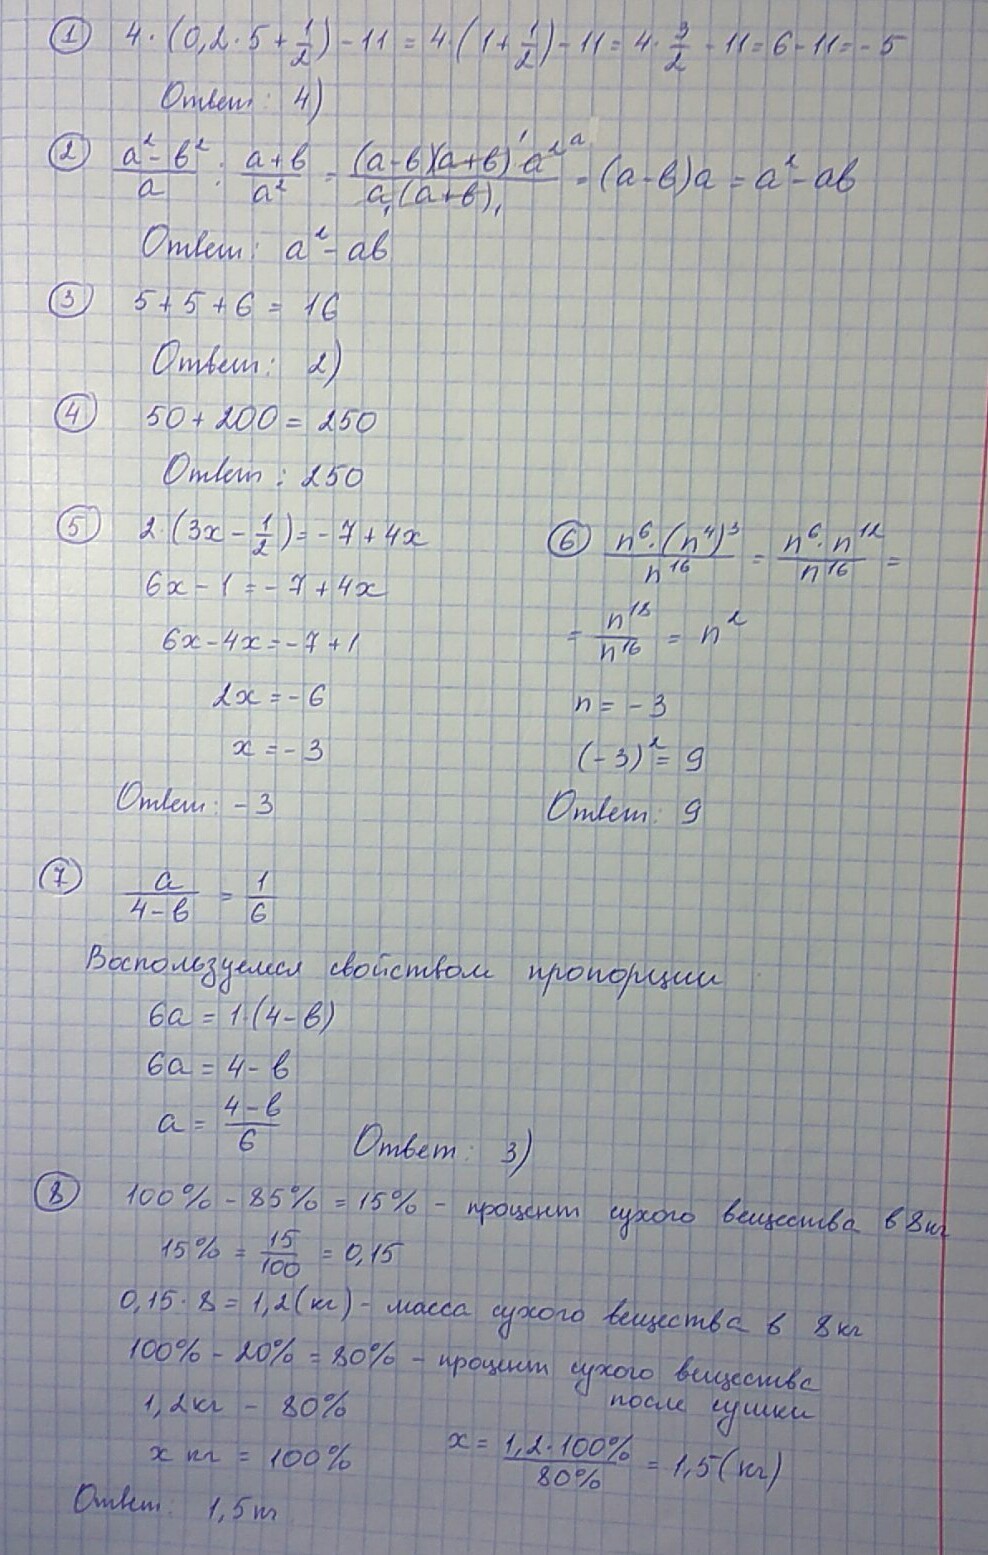 ① 4·(0,2·5+1/2)-11=4·(1+1/2)-11=4·3/2-11=6-11=-5
Ответ: 4)
② (a²-b²)/a : (a+b)/a² = ((a-b)(a+b)·a²)/(a(a+b)) = (a-b)a = a²-ab
Ответ: a²-ab
③ 5+5+6=16
Ответ: 2)
④ 50+200=250
Ответ: 250
⑤ 2·(3x-1/2)=-7+4x
6x-1=-7+4x
6x-4x=-7+1
2x=-6
x=-3
Ответ: -3
⑥ (n⁶·(n⁴)³)/n¹⁶ = (n⁶·n¹²)/n¹⁶ =
= n¹⁸/n¹⁶ = n²
n=-3
(-3)²=9
Ответ: 9
⑦ a/(4-b) = 1/6
Воспользуемся свойством пропорции
6a=1·(4-b)
6a=4-b
a=(4-b)/6
Ответ: 3)
⑧ 100%-85%=15% - процент сухого вещества в 8кг
15%=15/100=0,15
0,15·8=1,2(кг)- масса сухого вещества в 8кг
100%-20%=80% - процент сухого вещества
после сушки
1,2кг - 80%
x кг = 100%
x=(1,2·100%)/80%=1,5(кг)
Ответ: 1,5кг